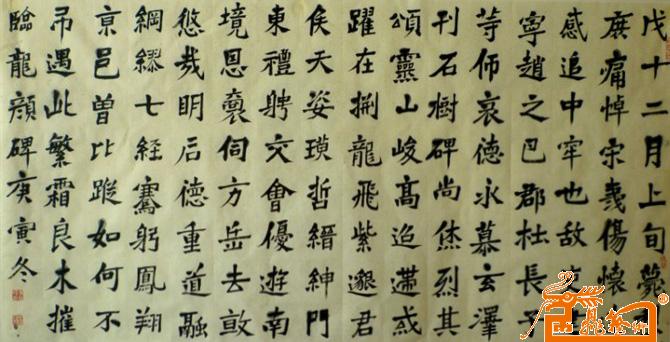 戊十二月上旬薨
庶痛悼宋夷傷懷
感追中牢也故
寧趙之巴郡杜長子
等仰哀德永慕玄澤
刊石樹碑尚烋烈其
頌靈山峻高迢遰或
躍在龍飛紫邈君
侯天姿哲縉紳門
東禮聘交會優遊南
境恩裔伺方岳去
悠哉明后德重道融
綢繆七經騫躬鳳翔
京邑曾比蹤如何不
吊遇此繁霜良木摧
臨龍顏碑庚寅冬